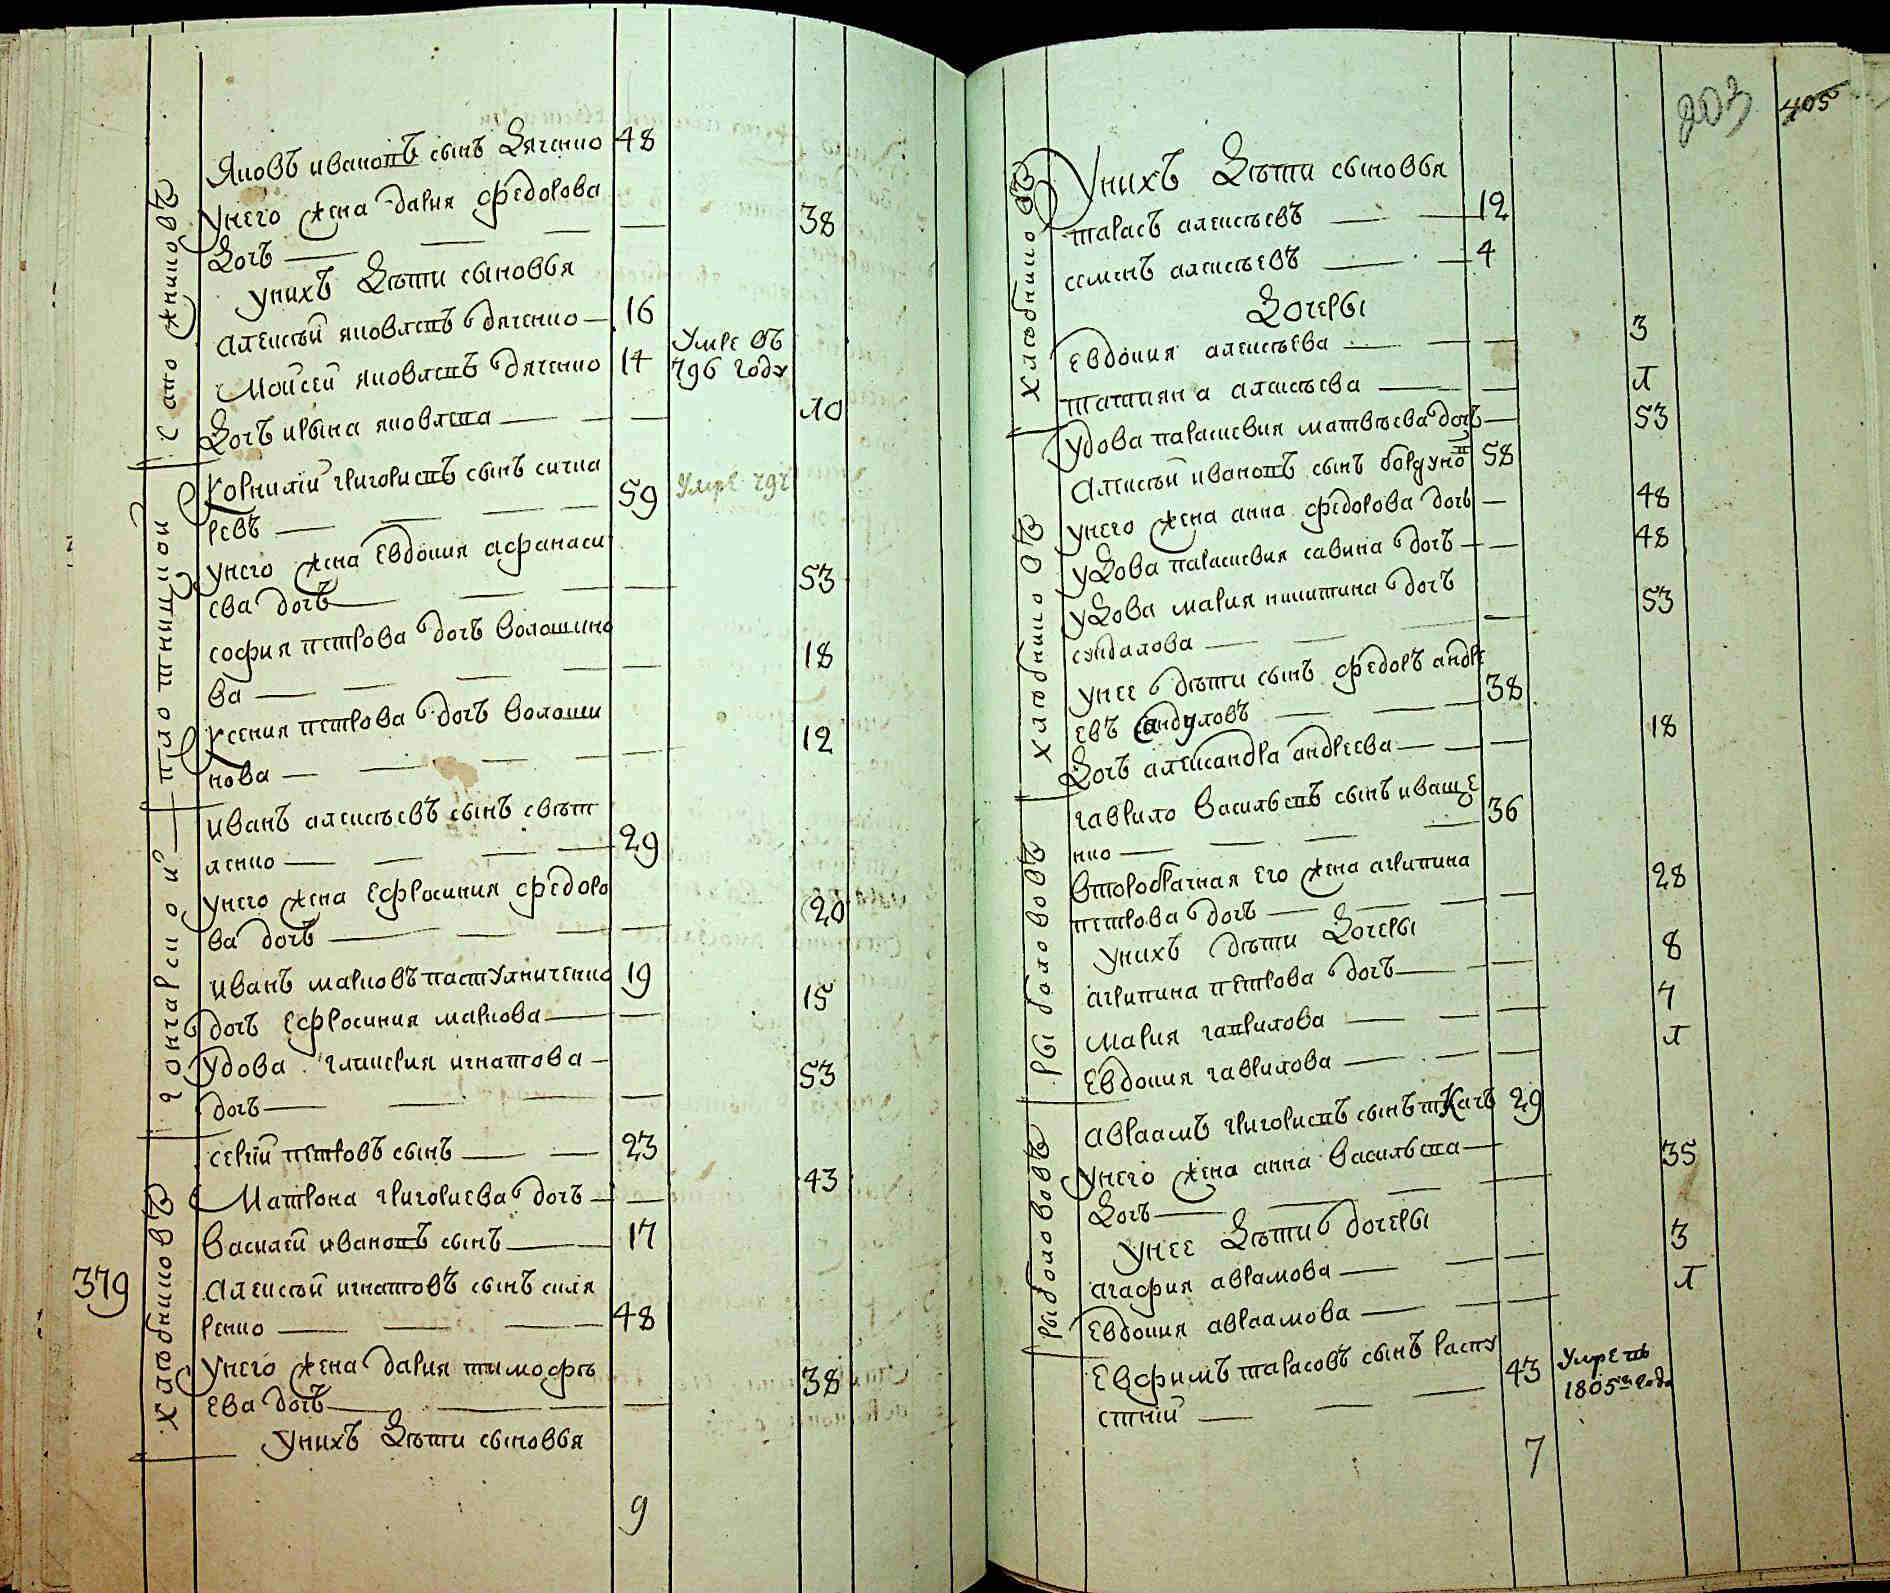 Яковъ ивановъ сынъ Дяченко 48
Унего жена дария федорова
Дочь 38
унихъ Дѣти сыновья
алексѣй яковлевъ дяченко 16
Моисей яковлевъ дяченко 14 Умре въ 796 году
Дочь ирына яковлева 10
сапожниковъ
Корнилий григориевъ сынъ сичка
ревъ 59 Умре 797
унего жена Евдокия афанаси
ева дочь 53
софия петрова дочь волошино
ва 18
Ксения петрова дочь волоши
нова 12
плотницкой
иванъ алексѣевъ сынъ свѣт
ленко 29
унего жена Ефросиния федоро
ва дочь 20
иванъ марковъ пастушиченко 19
дочь Ефросиния маркова 15
Удова гликерия игнатова
дочь 53
гончарской
сергий петровъ сынъ 23
Матрона григориева дочь 43
Василей ивановъ сынъ 17
379 алексѣй игнатовъ сынъ скля
ренко 48
унего жена дария тимофѣ
ева дочь 38
унихъ Дѣти сыновья
хлѣбниковъ
9
203 405
Унихъ Дѣти сыновья
тарасъ алексѣевъ 12
семенъ алексѣевъ 4
Дочеры
Евдокия алексѣева 3
татияна алексѣева л
удова параскевия матвѣева дочь 53
хлѣбниковъ
алексѣй ивановъ сынъ бордуновъ 58
унего жена анна федорова дочь 48
уДова параскевия савина дочь 48
уДова мария никитина дочь
сандалова 53
унее дѣти сынъ федоръ андре
евъ сандуловъ 38
Дочь александра андреева 18
хлѣбниковъ
гаврило васильевъ сынъ иваще
нко 36
второбрачная его жена агрипина
петрова дочь 28
унихъ дѣти Дочеры
агрипина петрова дочь 8
мария гаврилова 7
Евдокия гаврилова л
рыболововъ
авраамъ григориевъ сынъ ткачъ 29
унего жена анна васильева
Дочь 35
унее Дѣти дочеры
агафия аврамова 3
Евдокия авраамова л
рыболововъ
Евфимъ тарасовъ сынъ распу
стний 43 Умре въ 1805м годе
7